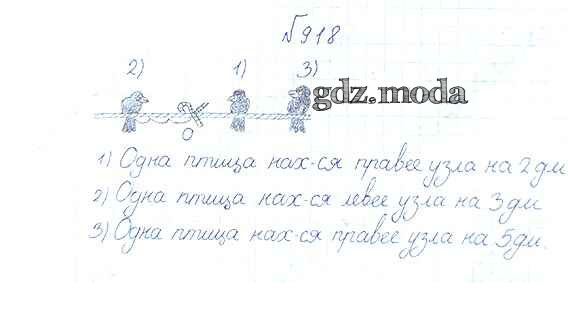 №918
2) 1) 3)
gdz.moda
O
1) Одна птица нах-ся правее узла на 2 дм
2) Одна птица нах-ся левее узла на 3 дм
3) Одна птица нах-ся правее узла на 5 дм.